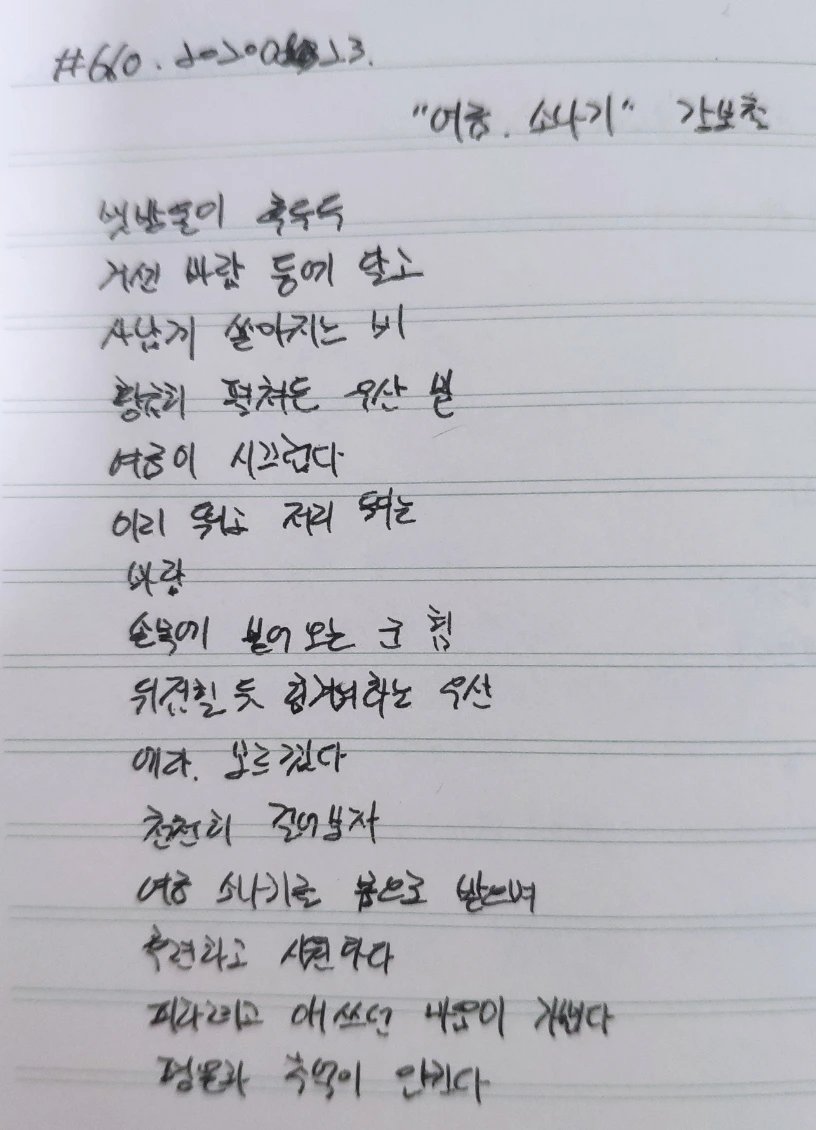 "여름. 소나기"
빗방울이 후두둑
거센 바람 등에 달고
사납게 쏟아지는 비
황급히 펼쳐든 우산 밑
여름이 시끄럽다
이리 뛰고 저리 뛰는
바람
손목에 불어오는 군 힘
뒤집힐 듯 힘겨워하는 우산
에라, 모르겠다
천천히 걸어보자
여름 소나기를 몸으로 받으며
후련하고 시원하다
피하려고 애쓰던 마음이 가볍다
평온과 축복이 안긴다